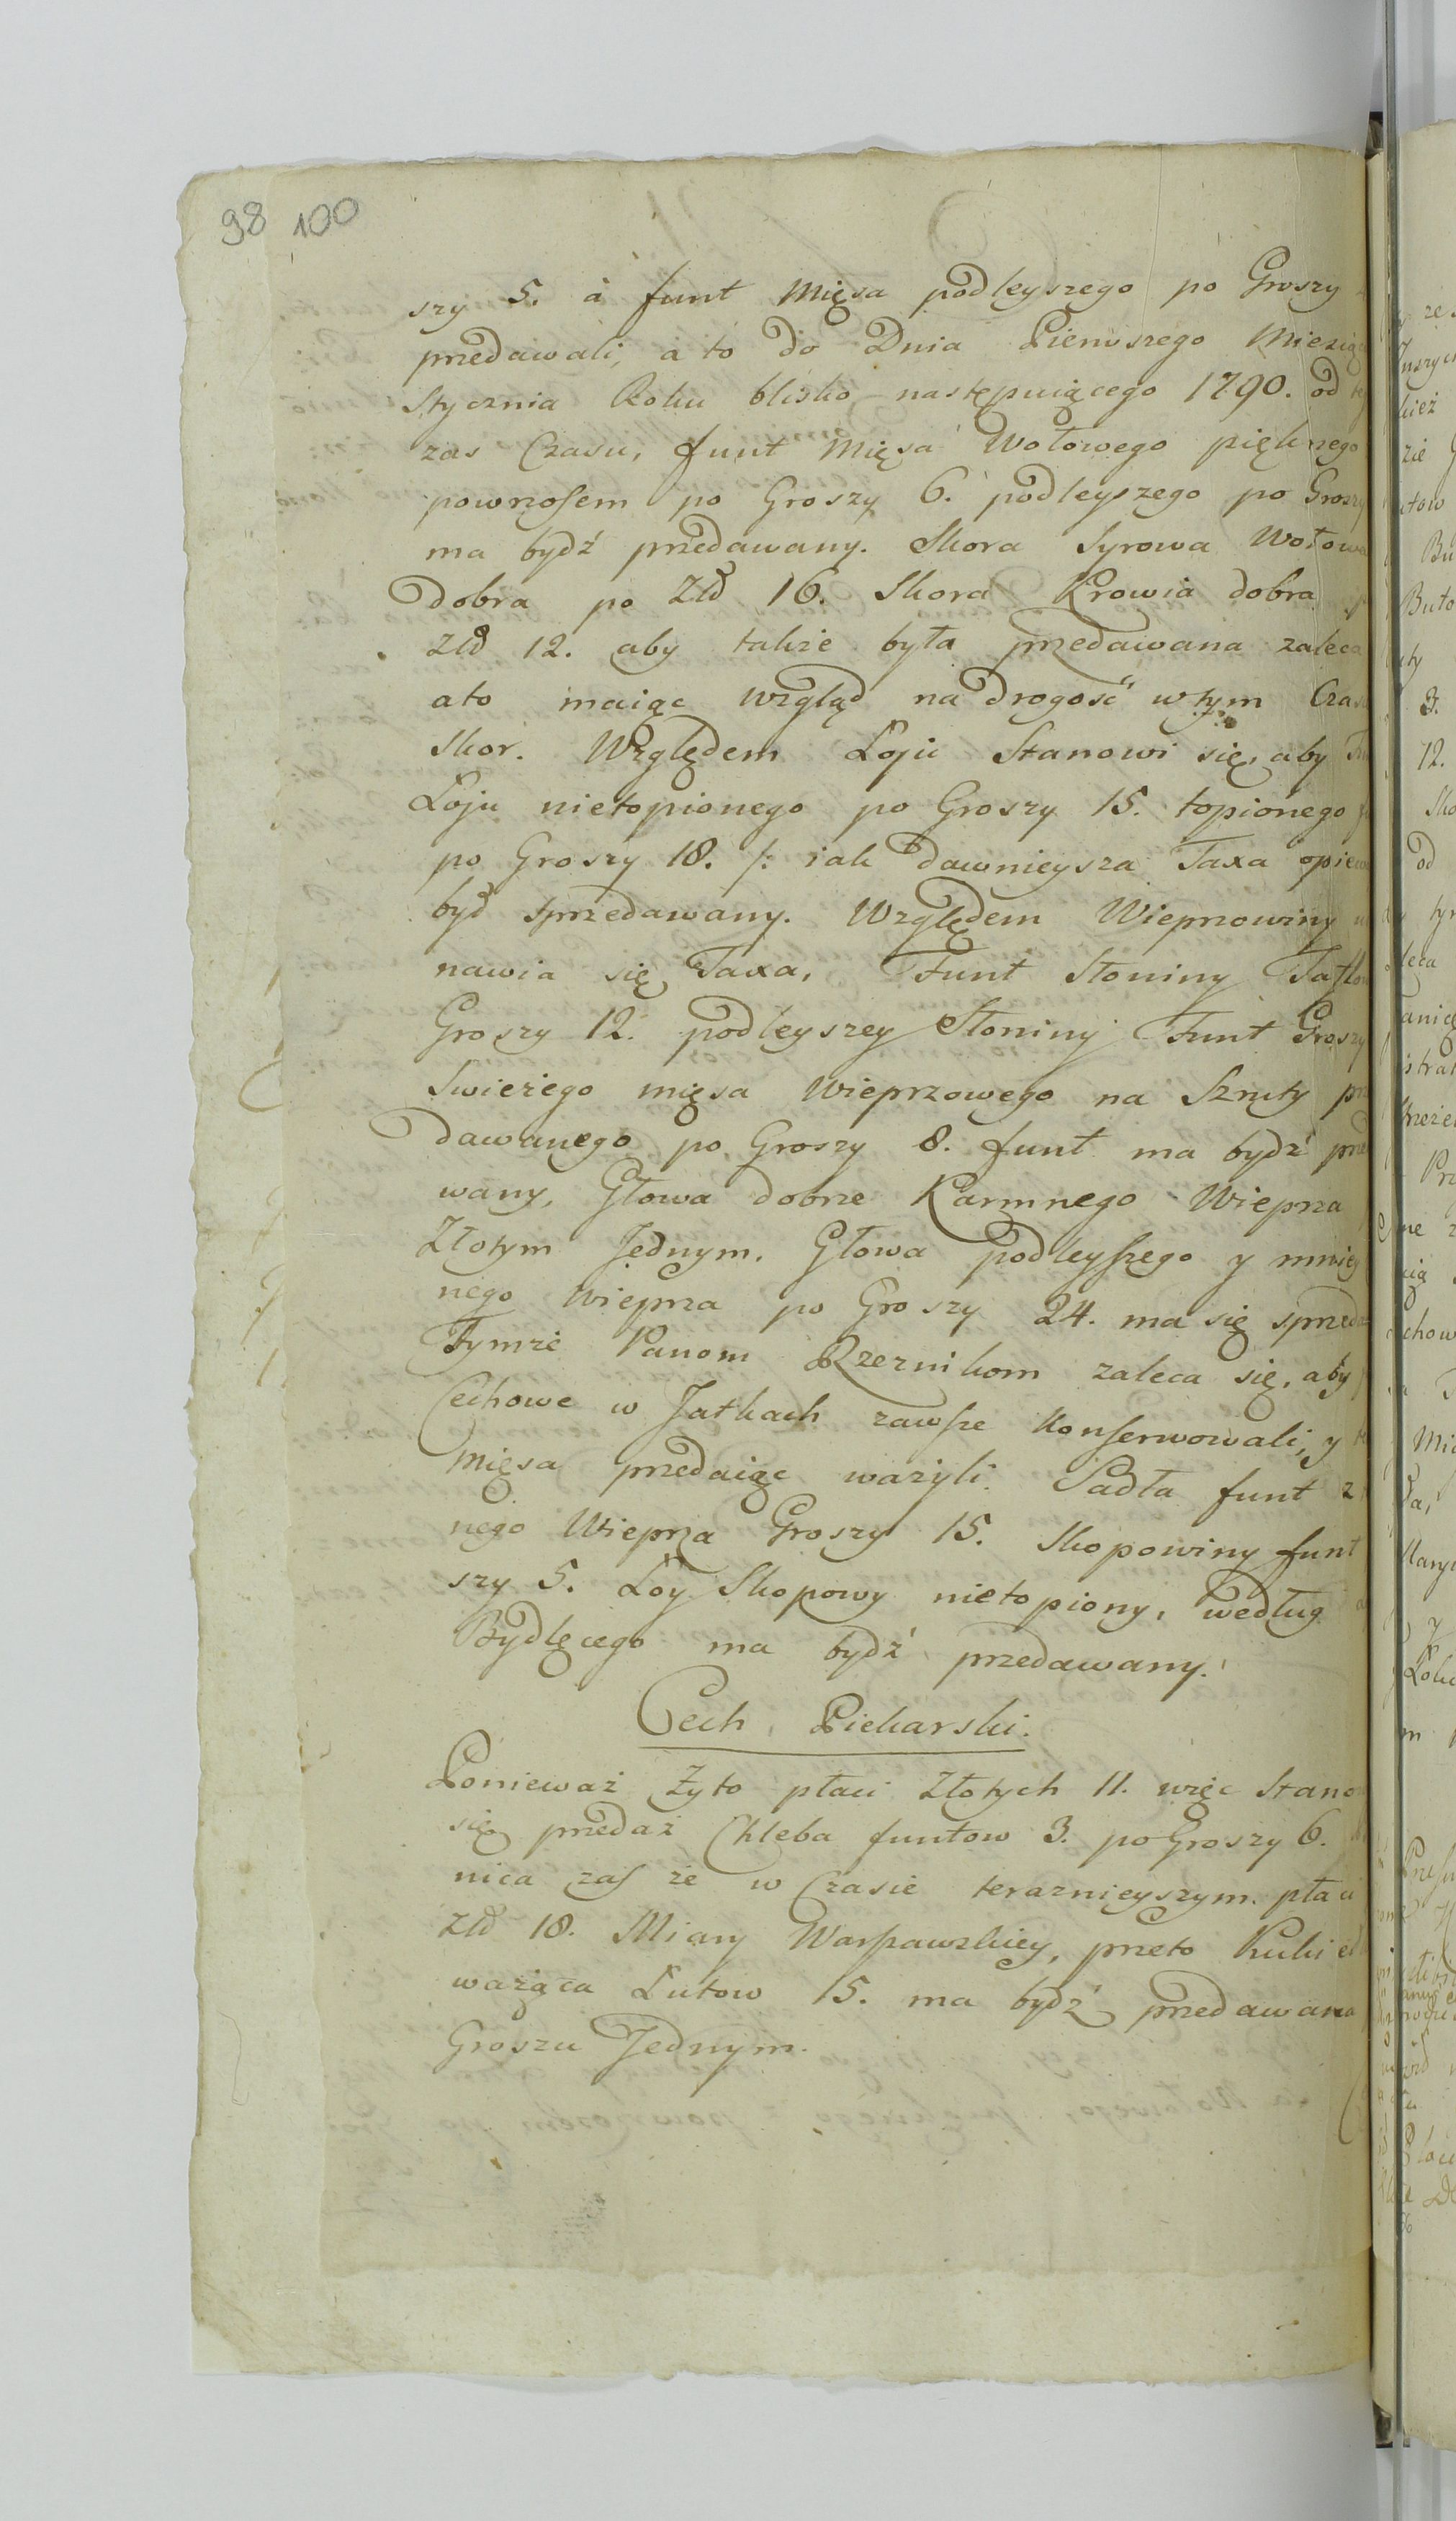 98 100
szy 5. à funt Mięsa podleyszego po Groszy
przedawali, à to do Dnia Pierwszego Miesiąc
Stycznia Roku blisko następuiącego 1790. od
zas Czasu, funt Mięsa Wołowego pięknego
powrosem po Groszy 6. podleyszego po Groszy
ma bydź przedawany. Skora Syrowa Wołowa
dobra po Złd 16. Skora Krowia dobra
Złd 12. aby takze była przedawana zaleca
ato maiąc wzgląd na drogość w tym Czasu
Skor. Względem Łoju Stanowi się, aby
Łoju nietopionego po Groszy 15. topionego
po Groszy 18. /: iak dawnieysza Taxa opiew
był sprzedawany. Względem Wieprzowiny
nawia się Taxa, Funt Słoniny
Groszy 12. podleyszey Słoniny Funt Groszy
Swieżego mięsa Wieprzowego na Sztuty prz
dawanego po Groszy 8. funt ma bydź prze
wany, Głowa dobrze Karmnego Wieprza
Złotym Jednym. Głowa podleyszego y mniey
nego wieprza po Groszy 24. ma się sprzeda
Tymże Panom Rzeznikom zaleca się, aby
Cechowe w Jatkach zawsze Konserwowali, y
mięsa przedaiąc ważyli. Sadła funt z
nego Wieprza Groszy 15. Skopowiny funt
szy 5. Łoy Skopowy nietopiony, według
Bydlęcego ma bydź przedawany.
Cech Piekarski.
Ponieważ Zyto płaci Złotych 11. więc Stano
się przedaż Chleba funtow 3. po Groszy 6.
nica zas że w Czasie teraznieyszym płaci
złd 18. Miary Warszawskiey, przeto
ważąca Łutow 15. ma bydź przedawana
Groszu Jednym.